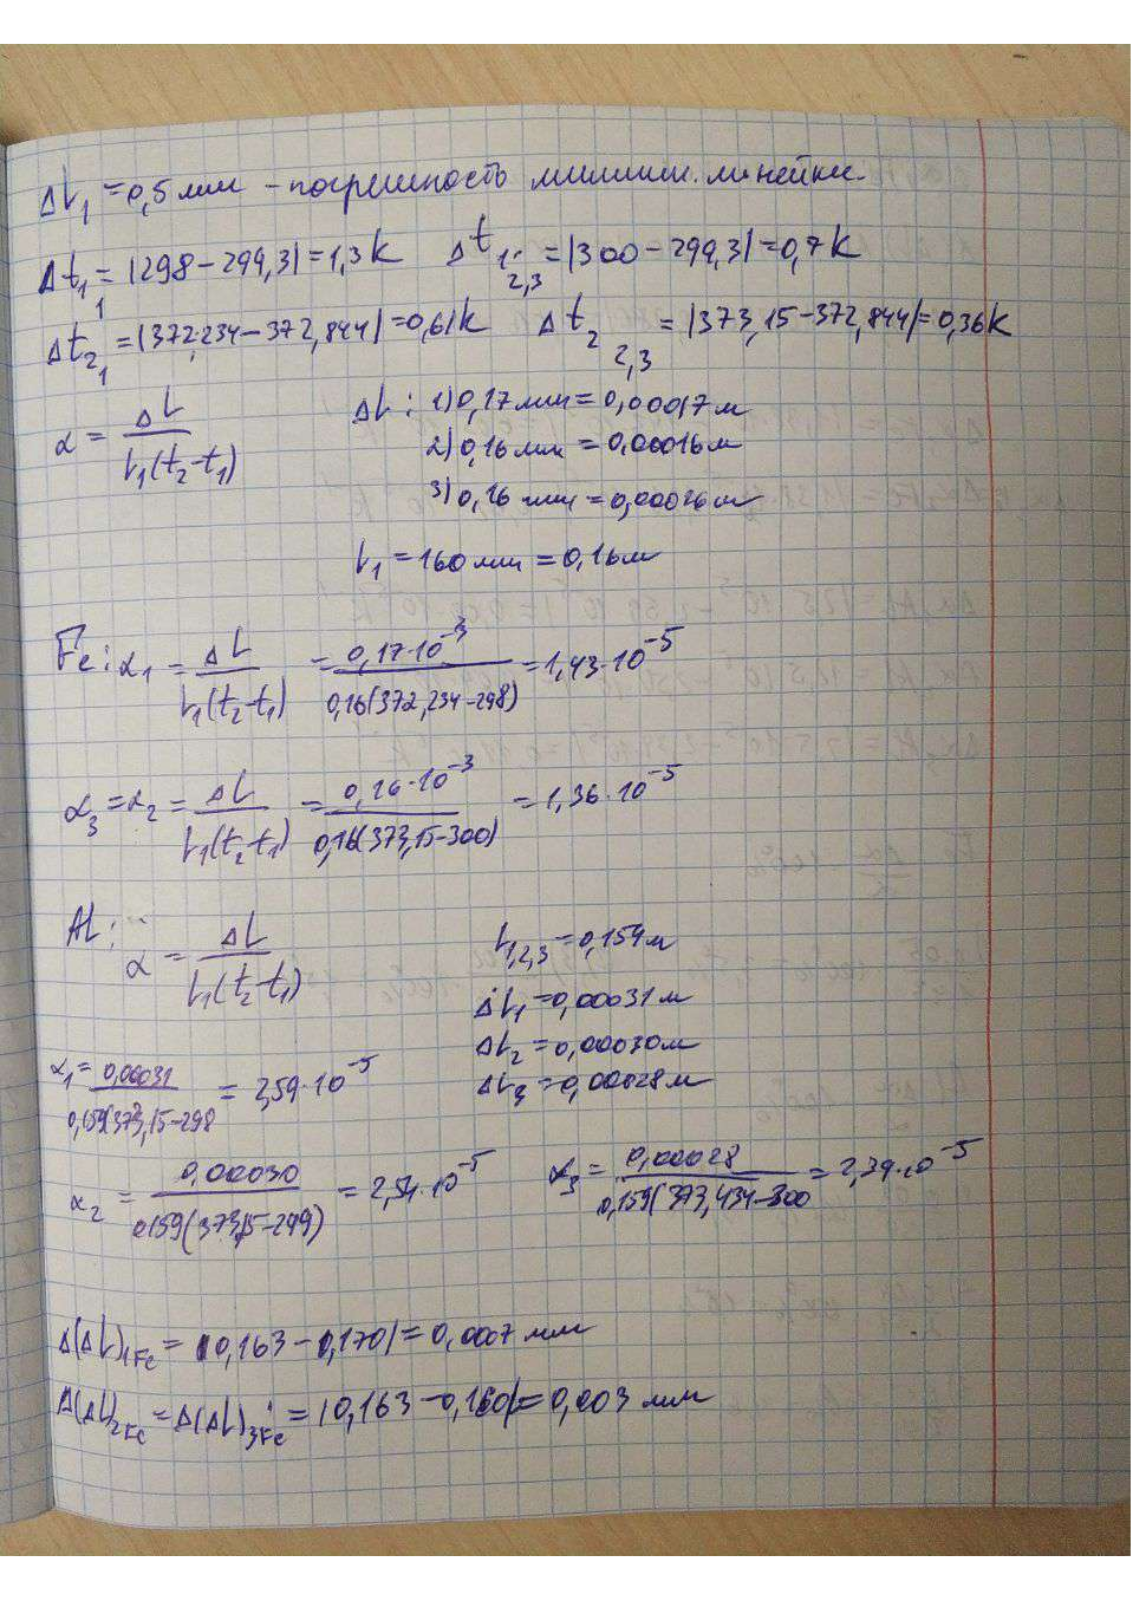 ΔL₁ = 0,5 мм – погрешность миллим. линейки.
Δt₁₁ = |298 – 299,3| = 1,3 K Δt₁₂,₃ = |300 – 299,3| = 0,7 K
Δt₂₁ = |372,234 – 372,844| = 0,61 K Δt₂₂,₃ = |373,15 – 372,844| = 0,36 K
α = ΔL / L₁(t₂ – t₁)
ΔL: 1) 0,17 мм = 0,00017 м
2) 0,16 мм = 0,00016 м
3) 0,16 мм = 0,00016 м
L₁ = 160 мм = 0,16 м
Fe: α₁ = ΔL / L₁(t₂ – t₁) = 0,17·10⁻³ / 0,16(372,234 – 298) = 1,43·10⁻⁵
α₃ = α₂ = ΔL / L₁(t₂ – t₁) = 0,16·10⁻³ / 0,16(373,15 – 300) = 1,36·10⁻⁵
Al: α = ΔL / L₁(t₂ – t₁)
L₁,₂,₃ = 0,159 м
ΔL₁ = 0,00031 м
ΔL₂ = 0,00030 м
ΔL₃ = 0,00028 м
α₁ = 0,00031 / 0,159(373,15 – 298 = 2,59·10⁻⁵
α₂ = 0,00030 / 0,159(373,15 – 299) = 2,54·10⁻⁵ α₃ = 0,00028 / 0,159(373,434 – 300 = 2,39·10⁻⁵
Δ(ΔL)₁Fe = |0,163 – 0,170| = 0,0007 мм
Δ(ΔL)₂Fe = Δ(ΔL)₃Fe = |0,163 – 0,160| = 0,003 мм